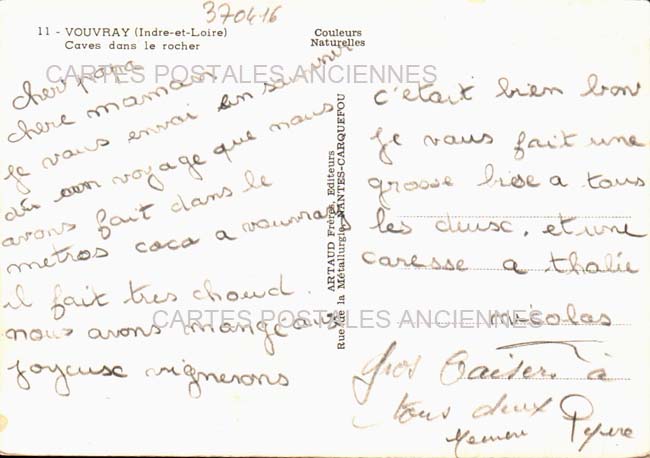 370416
11 - VOUVRAY (Indre-et-Loire)
Caves dans le rocher
Couleurs
Naturelles
CARTES POSTALES ANCIENNES
cher papa
chere maman
je vous envoi un souvenir
du voyage que nous
avons fait dans le
metros coca a vouvray
il fait tres choud.
nous avons mangé aux
joyeux vignerons
ARTAUD Frères, Editeurs
Rue de la Métallurgie, NANTES-CARQUEFOU
c'etait bien bon
je vous fait une
grosse bise a tous
les deux, et une
caresse a thalie
nicolas
CARTES POSTALES ANCIENNES
Gros Baisers à
tous deux
Memere Pepere